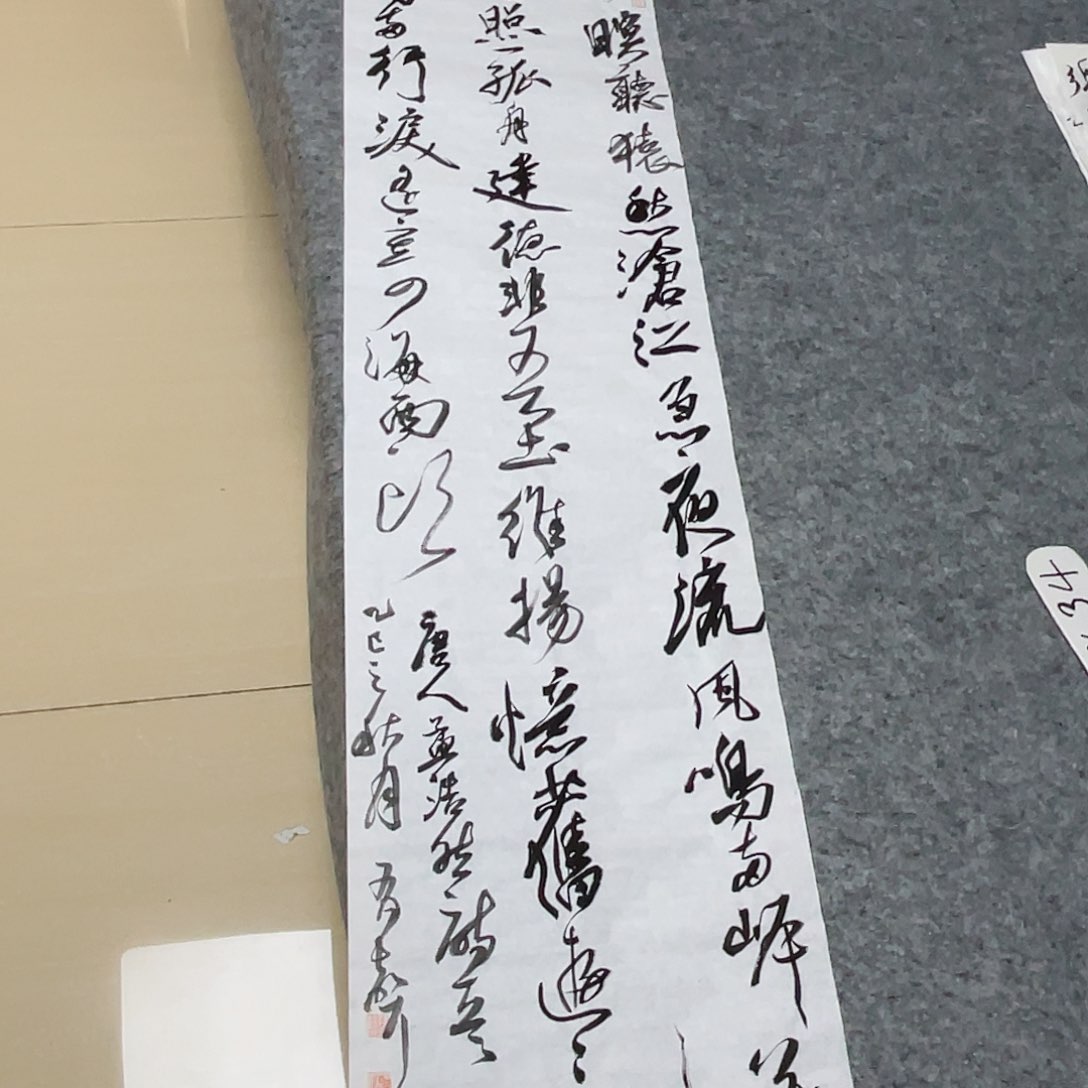 暝聽猿愁滄江急夜流風鳴兩岸
照一孤舟建德非吾土維揚憶舊遊
兩行淚遙寄海西頭
唐人孟浩然詩
乙巳之秋月